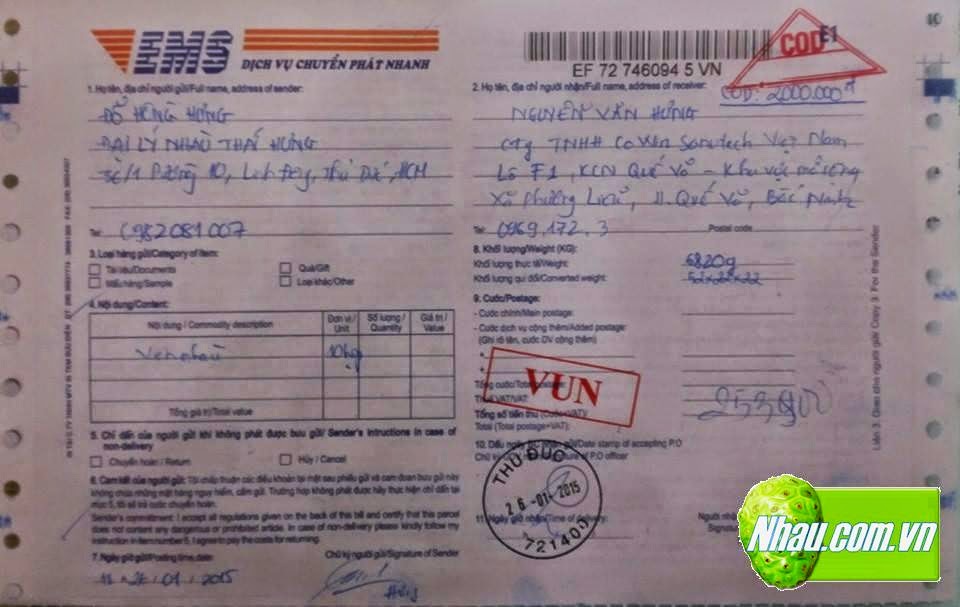 EMS
DỊCH VỤ CHUYỂN PHÁT NHANH
EF 72 746094 5 VN
COD E1
COD: 2000.000đ
1. Họ tên, địa chỉ người gửi/Full name, address of sender:
ĐỖ HỒNG HƯNG
ĐẠI LÝ NHÀU THÁI HƯNG
Đường 10, Linh Đông, Thủ Đức, HCM
Tel: 0982081007
2. Họ tên, địa chỉ người nhận/Full name, address of receiver:
NGUYỄN VĂN HƯNG
Cty TNHH Sanutech Việt Nam
Lô F1, KCN Quế Võ - Khu vực mở rộng
Xã Phương Liễu, H. Quế Võ, Bắc Ninh
Tel: 0969.172.3
Postal code
3. Loại hàng gửi/Category of item:
Tài liệu/Documents
Quà/Gift
Mẫu hàng/Sample
Loại khác/Other
4. Nội dung/Content:
Nội dung / Commodity description
Đơn vị / Unit
Số lượng / Quantity
Giá trị / Value
10hộp
Tổng giá trị/Total value
5. Chỉ dẫn của người gửi khi không phát được bưu gửi/ Sender's intructions in case of non-delivery
Chuyển hoàn / Return
Hủy / Cancel
6. Cam kết của người gửi: Tôi chấp thuận các điều khoản tại mặt sau phiếu gửi và cam đoan bưu gửi này
không chứa những mặt hàng nguy hiểm, cấm gửi. Trường hợp không phát được hãy thực hiện chỉ dẫn tại
mục 5, tôi sẽ trả cước chuyển hoàn.
Sender's commitment: I accept all regulations given on the back of this bill and certify that this parcel
does not contain any dangerous or prohibited article. In case of non-delivery please kindly follow my
instruction in item number 5, I agree to pay the costs for returning.
7. Ngày giờ gửi/Posting time, date:
01/2015
Chữ ký người gửi/Signature of Sender
8. Khối lượng/Weight (KG):
Khối lượng thực tế/Weight:
6820g
Khối lượng qui đổi/Converted weight:
52x22x22
9. Cước/Postage:
- Cước chính/Main postage:
- Cước dịch vụ cộng thêm/Added postage:
(Ghi rõ tên, cước DV cộng thêm)
VUN
Tổng cước/Total postage:
Thuế VAT/VAT:
Tổng số tiền thu (Cước+VAT)/
Total (Total postage+VAT):
10. Dấu ngày /Date stamp of accepting P.O
Chữ ký /Signature of P.O officer
THỦ ĐỨC
26-01-2015
721400
11. Ngày giờ nhận/Time of delivery:
Người nhận
Signature
Liên 3: Giao cho người gửi/ Copy 3: For the Sender
Nhau.com.vn